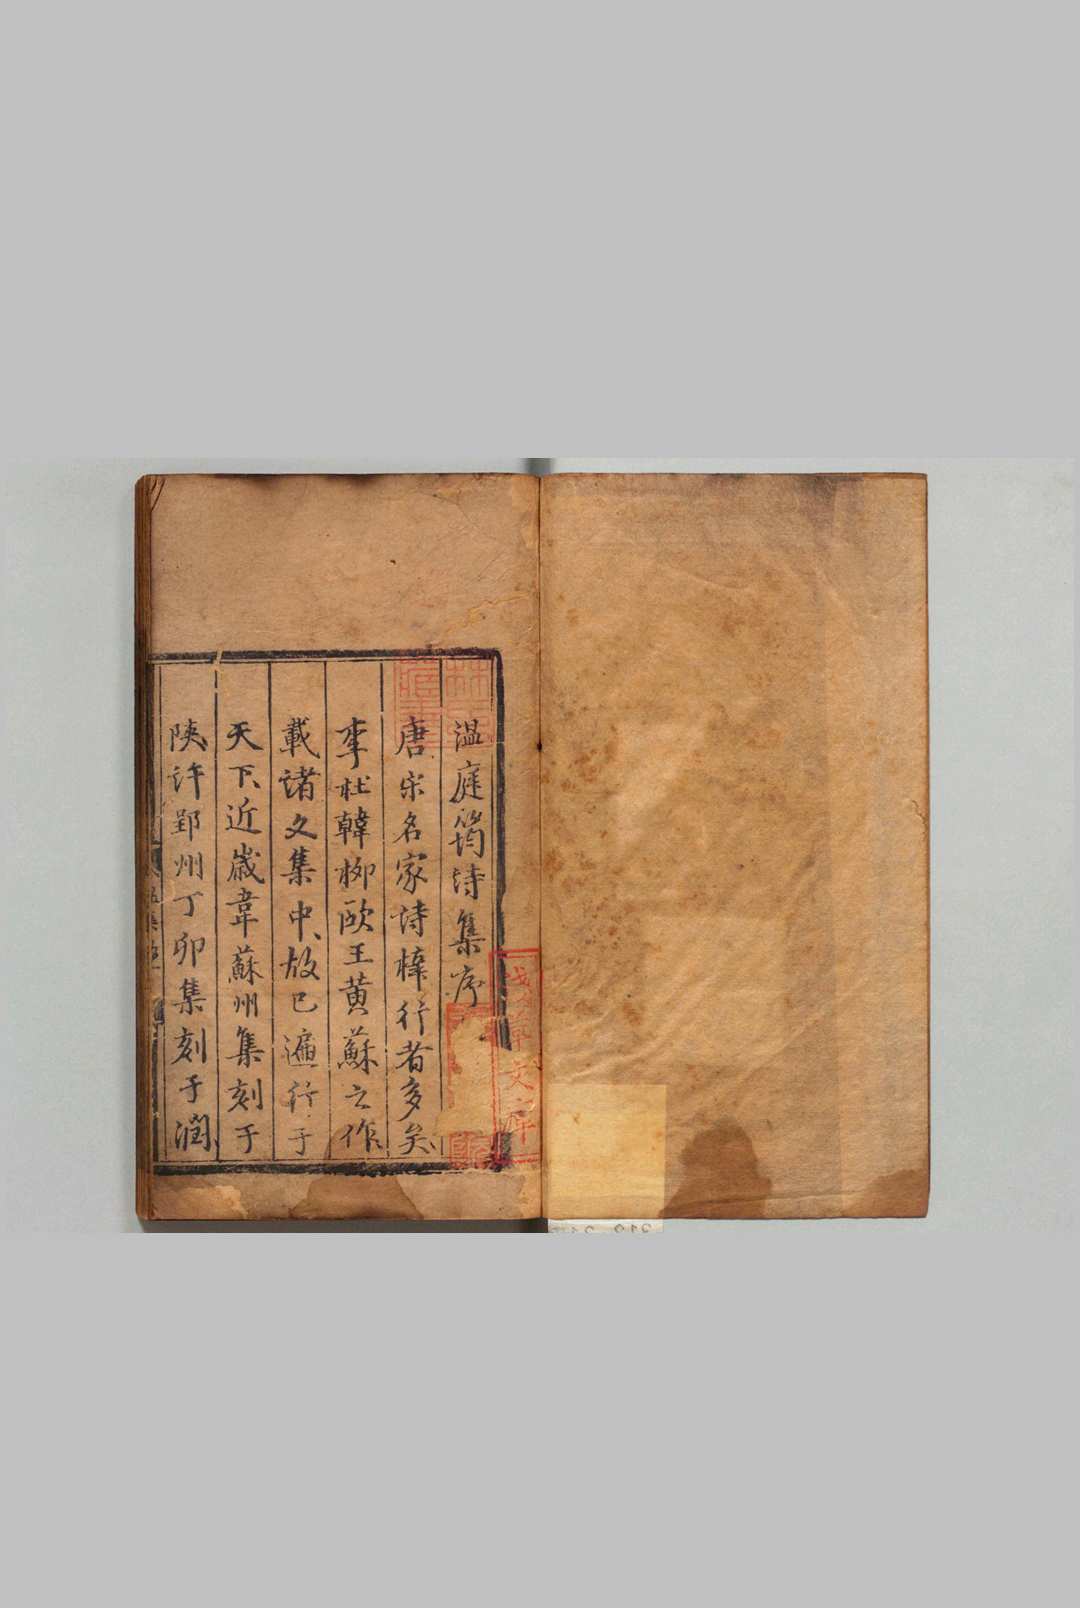 温庭筠詩集序
唐宋名家詩梓行者多矣
李杜韓柳歐王黄蘇之作
載諸文集中故已遍行于
天下近歲韋蘇州集刻于
陝許郢州丁卯集刻于潤
淺草文庫